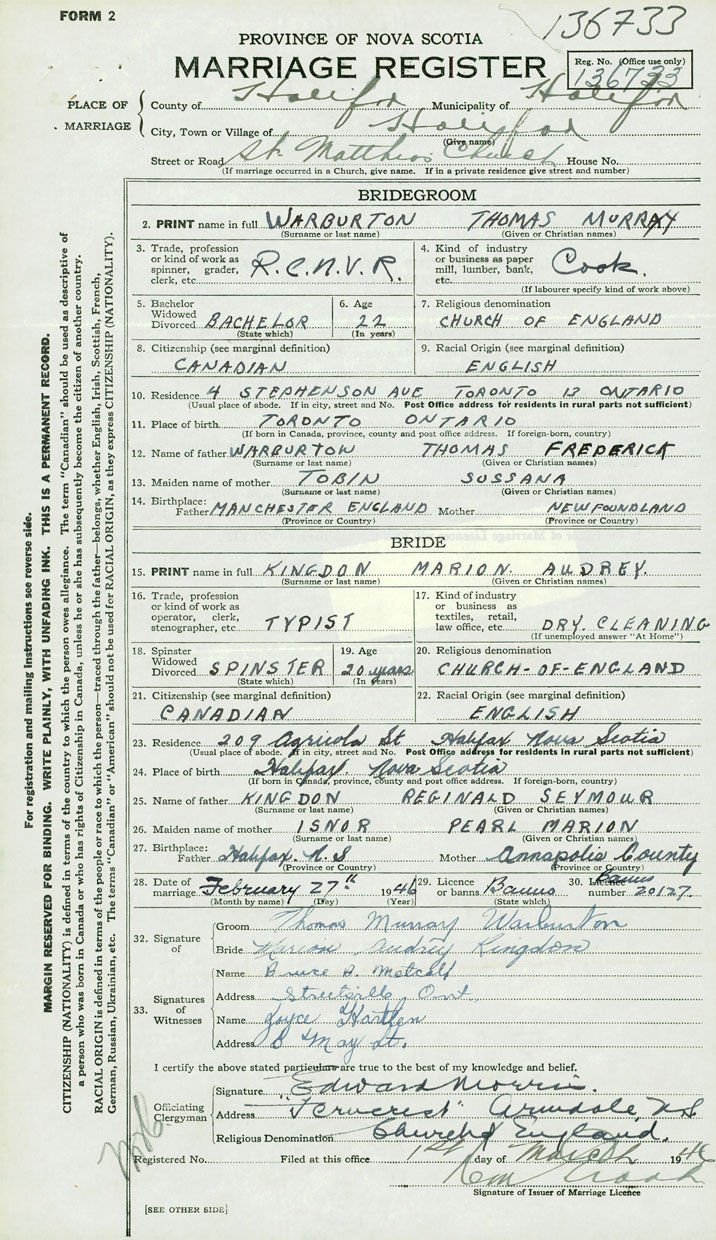 FORM 2
136733
PROVINCE OF NOVA SCOTIA
MARRIAGE REGISTER
Reg. No. (Office use only)
136733
PLACE OF MARRIAGE
County of Halifax Municipality of Halifax
City, Town or Village of Halifax
(Give name)
Street or Road St. Matthews Church House No.
(If marriage occurred in a Church, give name. If in a private residence give street and number)
BRIDEGROOM
2. PRINT name in full WARBURTON THOMAS MURRAY
(Surname or last name) (Given or Christian names)
3. Trade, profession or kind of work as spinner, grader, clerk, etc. R.C.N.V.R.
4. Kind of industry or business as paper mill, lumber, bank, etc. Cook.
(If labourer specify kind of work above)
5. Bachelor Widowed Divorced BACHELOR
(State which)
6. Age 22
(In years)
7. Religious denomination
CHURCH OF ENGLAND
8. Citizenship (see marginal definition)
CANADIAN
9. Racial Origin (see marginal definition)
ENGLISH
10. Residence 4 STEPHENSON AVE TORONTO 13 ONTARIO
(Usual place of abode. If in city, street and No. Post Office address for residents in rural parts not sufficient)
11. Place of birth TORONTO ONTARIO
(If born in Canada, province, county and post office address. If foreign-born, country)
12. Name of father WARBURTON THOMAS FREDERICK
(Surname or last name) (Given or Christian names)
13. Maiden name of mother TOBIN SUSSANA
(Surname or last name) (Given or Christian names)
14. Birthplace: Father MANCHESTER ENGLAND Mother NEWFOUNDLAND
(Province or Country) (Province or Country)
BRIDE
15. PRINT name in full KINGDON MARION. AUDREY.
(Surname or last name) (Given or Christian names)
16. Trade, profession or kind of work as operator, clerk, stenographer, etc. TYPIST
17. Kind of industry or business as textiles, retail, law office, etc. DRY. CLEANING
(If unemployed answer "At Home")
18. Spinster Widowed Divorced SPINSTER
(State which)
19. Age 20 years
(In years)
20. Religious denomination
CHURCH-OF-ENGLAND
21. Citizenship (see marginal definition)
CANADIAN
22. Racial Origin (see marginal definition)
ENGLISH
23. Residence 209 Agricola St Halifax Nova Scotia
(Usual place of abode. If in city, street and No. Post Office address for residents in rural parts not sufficient)
24. Place of birth Halifax, Nova Scotia
(If born in Canada, province, county and post office address. If foreign-born, country)
25. Name of father KINGDON REGINALD SEYMOUR
(Surname or last name) (Given or Christian names)
26. Maiden name of mother ISNOR PEARL MARION
(Surname or last name) (Given or Christian names)
27. Birthplace: Father Halifax. N.S Mother Annapolis County
(Province or Country) (Province or Country)
28. Date of marriage February 27th 1946
(Month by name) (Day) (Year)
29. Licence or banns Banns
(State which)
30. Licence Banns number 20127.
32. Signature of
Groom Thomas Murray Warburton
Bride Marion Audrey Kingdon
33. Signatures of Witnesses
Name Bruce A. Metcalf
Address Streetsville Ont
Name Joyce Hartlen
Address 8 May St.
I certify the above stated particulars are true to the best of my knowledge and belief.
Officiating Clergyman
Signature Edward Morris.
Address "Ferncrest" Armdale, N.S
Religious Denomination Church of England.
Registered No. Filed at this office 1st day of March 1946
Signature of Issuer of Marriage Licence
[SEE OTHER SIDE]
For registration and mailing instructions see reverse side.
MARGIN RESERVED FOR BINDING. WRITE PLAINLY, WITH UNFADING INK. THIS IS A PERMANENT RECORD.
CITIZENSHIP (NATIONALITY) is defined in terms of the country to which the person owes allegiance. The term "Canadian" should be used as descriptive of
a person who was born in Canada or who has rights of Citizenship in Canada, unless he or she has subsequently become the citizen of another country.
RACIAL ORIGIN is defined in terms of the people or race to which the person—traced through the father—belongs, whether English, Irish, Scottish, French,
German, Russian, Ukrainian, etc. The terms "Canadian" or "American" should not be used for RACIAL ORIGIN, as they express CITIZENSHIP (NATIONALITY).